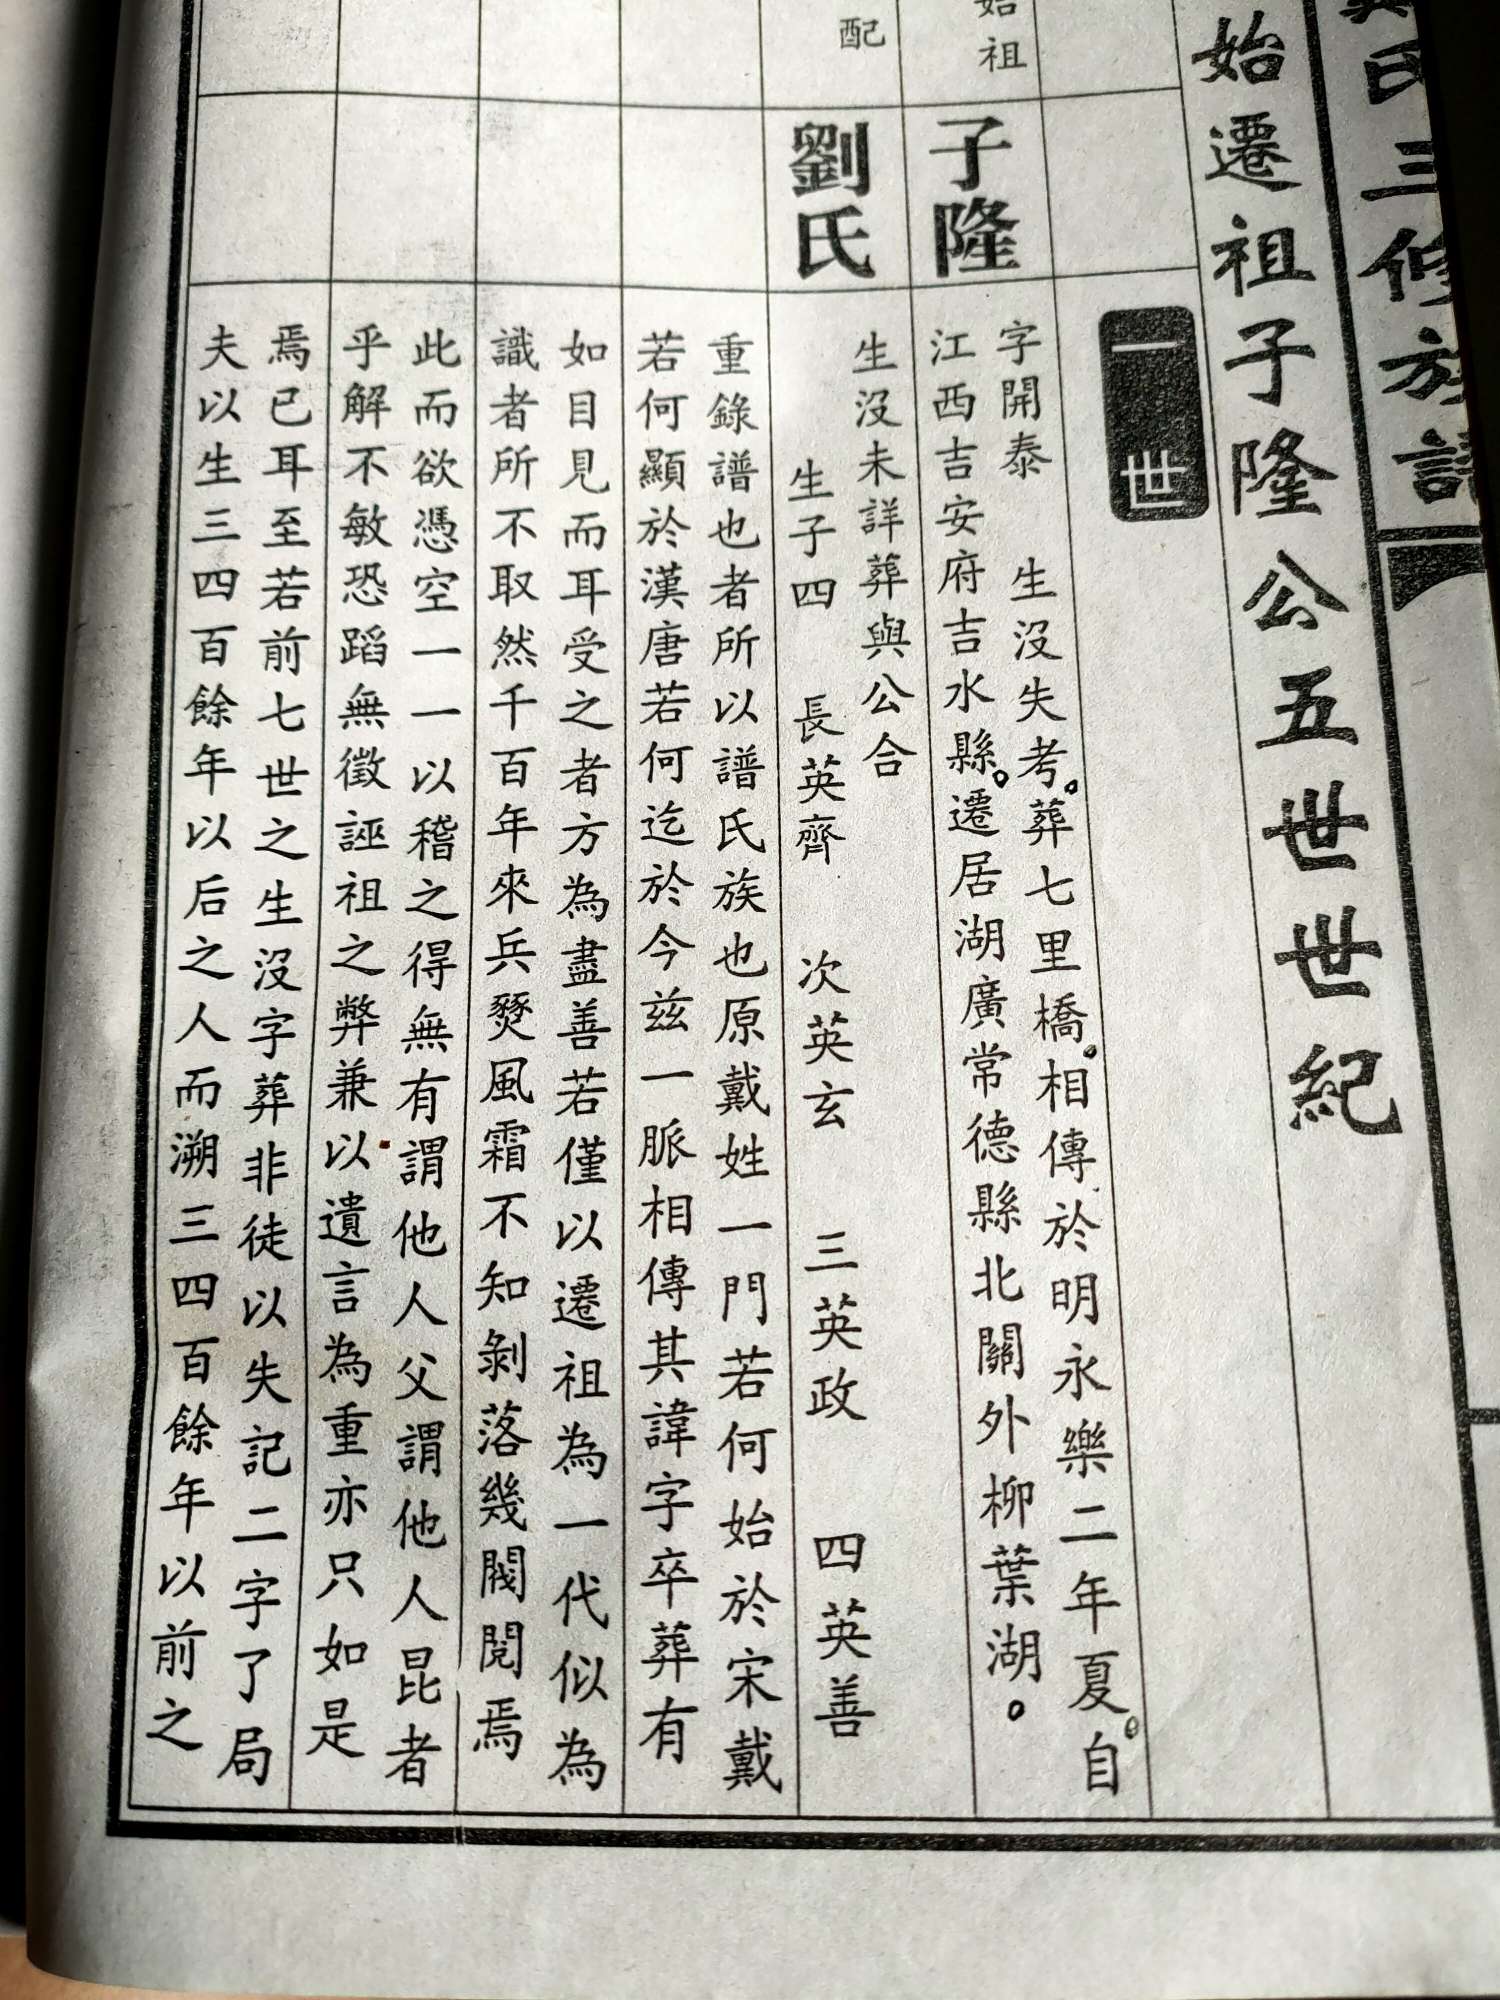 氏三修族譜
始遷祖子隆公五世世紀
一世
始祖
子隆
字開泰 生沒失考。葬七里橋。相傳於明永樂二年夏。自
江西吉安府吉水縣。遷居湖廣常德縣北關外柳葉湖。
配
劉氏
生沒未詳葬與公合
生子四 長英齊 次英玄 三英政 四英善
重錄譜也者所以譜氏族也原戴姓一門若何始於宋戴
若何顯於漢唐若何迄於今兹一脈相傳其諱字卒葬有
如目見而耳受之者方為盡善若僅以遷祖為一代似為
識者所不取然千百年來兵燹風霜不知剝落幾閥閱焉
此而欲憑空一一以稽之得無有謂他人父謂他人昆者
乎解不敏恐蹈無徵誣祖之弊兼以遺言為重亦只如是
焉已耳至若前七世之生沒字葬非徒以失記二字了局
夫以生三四百餘年以后之人而溯三四百餘年以前之